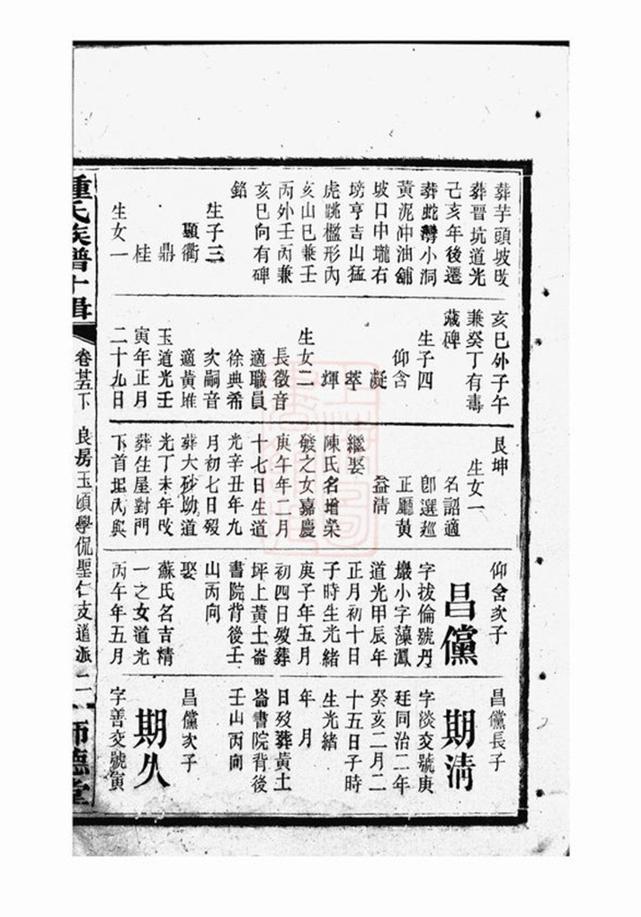 葬芋頭坡改
葬晉坑道光
己亥年後遷
葬蛇灣小洞
黃泥冲油舖
坡口中壠右
塝亨吉山猛
虎跳檻形內
亥山巳兼壬
丙外壬丙兼
亥巳向有碑
銘
生子三
顯衢
鼎
桂
生女一
亥巳外子午
兼癸丁有毒
藏碑
生子四
仰含
凝
萃
燡
生女二
長徵音
適職員
徐典希
次嗣音
適黃堆
玉道光壬
寅年正月
二十九日
艮坤
生女一
名詔適
卽選廵
正廳黃
益清
繼娶
陳氏名增榮
發之女嘉慶
庚午年二月
十七日生道
光辛丑年九
月初七日歿
葬大砂坳道
光丁未年改
葬住屋對門
下首坦內與
仰含次子
昌儻
字拔倫號丹
巖小字藻鳳
道光甲辰年
正月初十日
子時生光緒
庚子年五月
初四日歿葬
坪上黃土崙
書院背後壬
山丙向
娶
蘇氏名吉精
一之女道光
丙午年五月
昌儻長子
期清
字淡交號庚
廷同治二年
癸亥二月二
十五日子時
生光緒
年 月
日歿葬黃土
崙書院背後
壬山丙向
昌儻次子
期久
字善交號寅
氏族譜十輯
卷廿五下
良房玉頎學侃聖仁支道派
師德堂